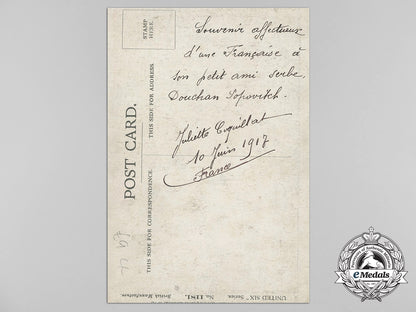 STAMP
HERE.
Souvenir affectueux
d'une Française à
son petit ami serbe,
Douchan Popovitch.
Juliette Coquillat
10 Juin 1917
France
POST CARD.
THIS SIDE FOR ADDRESS.
THIS SIDE FOR CORRESPONDENCE.
"UNITED SIX" Series.
No. 1181.
British Manufacture.
eMedals